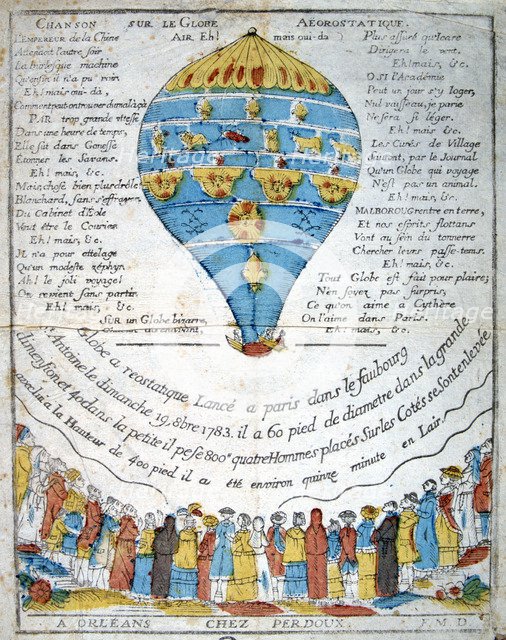 CHANSON SUR LE GLOBE AËOROSTATIQUE.
L'EMPEREUR de la Chine
AIR Eh! mais oui-da )
Attendoit l'autre soir
La burlesque machine
Qu'enfin il n'a pu voir
Eh! mais oui-da,
Comment peut-on trouver du mal à ça
PAR trop grande vitesse
Dans une heure de temps,
Elle fut dans Gonesse
Etonner les Savans.
Eh! mais, &c.
Mais chose bien plus drôle
Blanchard, sans s'effrayer,
Du Cabinet d'Eole
Veut être le Courier
Eh! mais, &c.
IL n'a pour attelage
Qu'un modeste zéphyr,
Ah! le joli voyage!
On revient sans partir
Eh! mais, &c.
SUR un Globe bizarre,
Plus assuré qu'Icare
Dirigera le vent.
Eh! mais, &c.
O SI l'Académie
Peut un jour s'y loger,
Nul vaisseau, je parie
Ne sera si léger.
Eh! mais, &c.
Les Curés de Village
Sauront, par le Journal
Qu'un Globe qui voyage
N'est pas un animal.
Eh! mais, &c.
MALBOROUG rentre en terre,
Et nos esprits flottans
Vont au sein du tonnerre
Chercher leurs passe-tems.
Eh! mais, &c.
Tout Globe est fait pour plaire;
N'en soyez pas surpris,
Ce qu'on aime à Cythère
On l'aime dans Paris.
Eh! mais, &c.
Globe a reostatique Lancé a paris dans le faubourg
St Antoine le dimanche 19. 8bre 1783. il a 60 pied de diametre dans la grande
dimention et 40 dans la petite il pese 800# quatre Hommes placés Sur les Cotés se Sont enlevée
a la Hauteur de 400 pied il a été environ quinze minute en Lair.
A ORLÉANS CHEZ PERDOUX. F. M. D
Heritage
Heritage